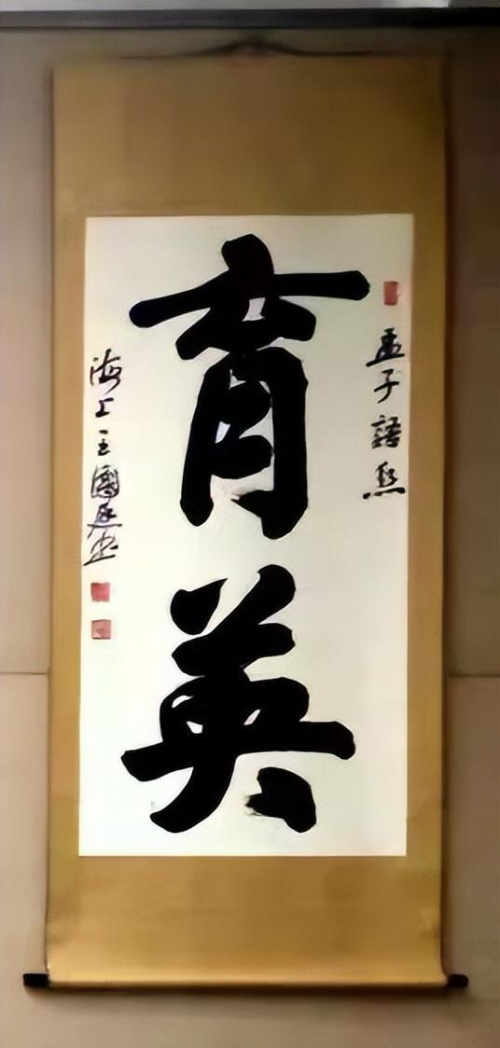 孟子語
育英
海上王國